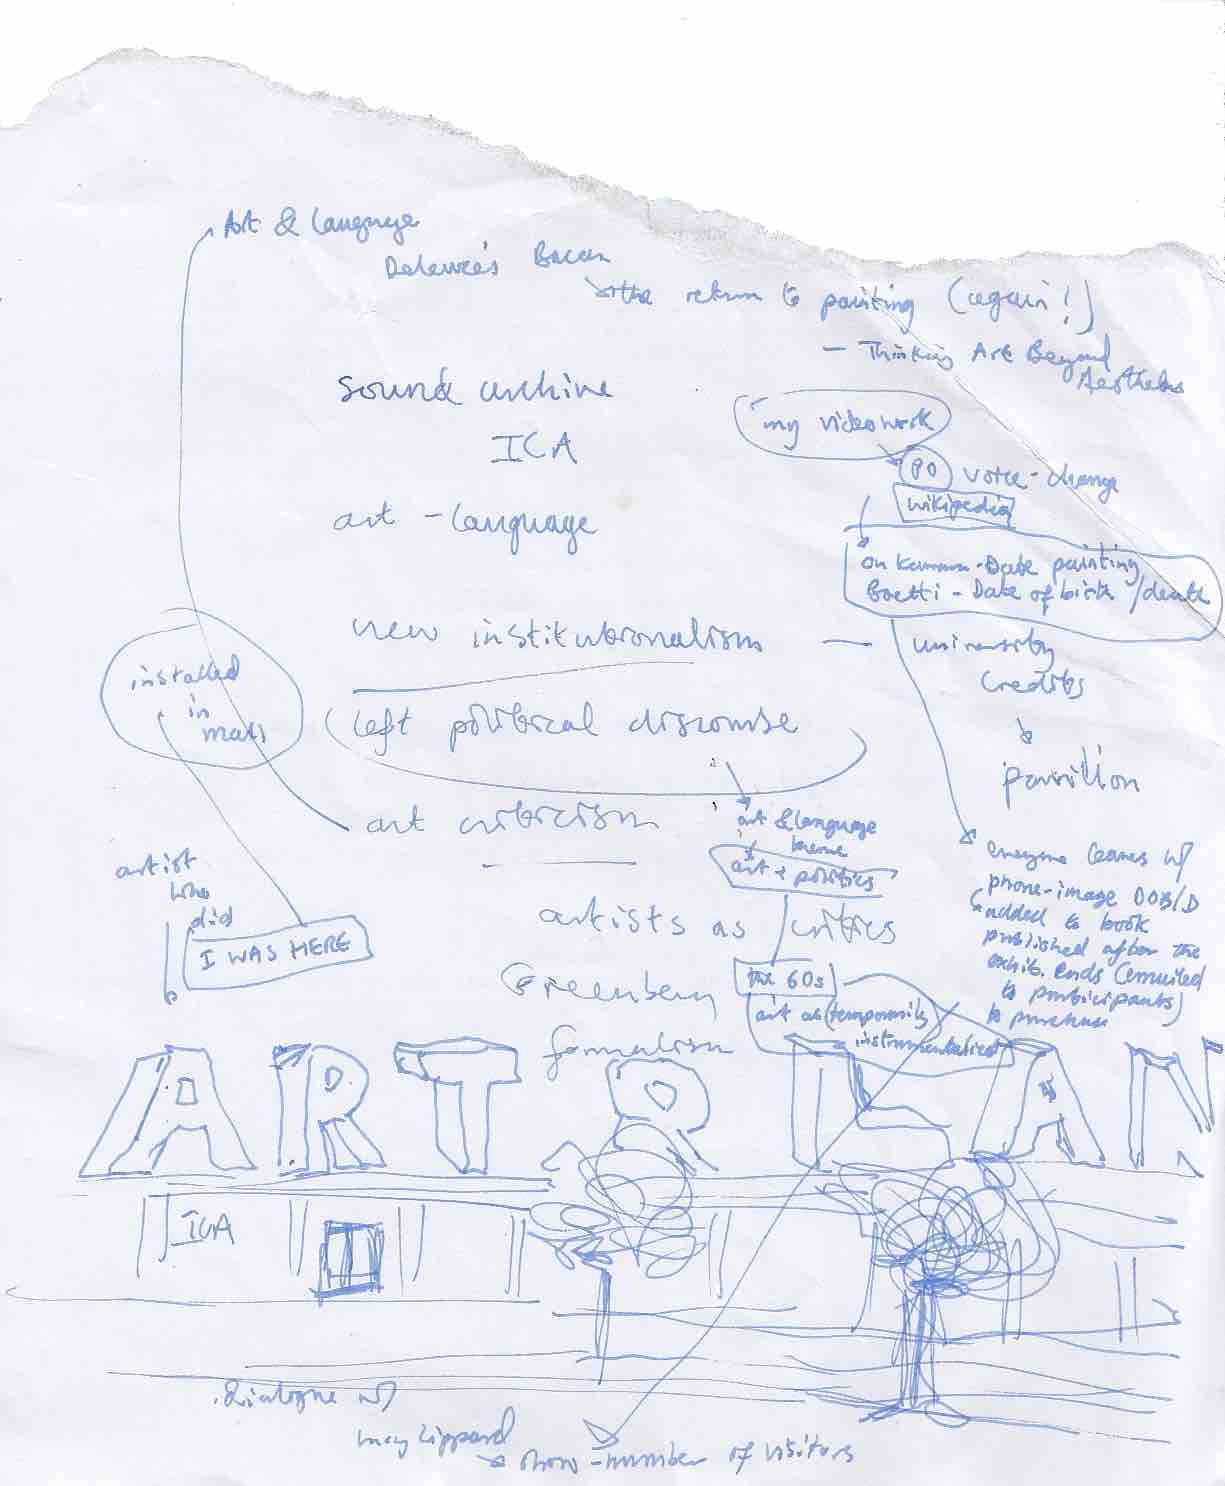 Art & Language
Deleuze's Bacon
the return to painting (again!)
— Thinking Art Beyond
Aesthetics
sound archive
my videowork
ICA
PO voice-change
wikipedia
art - language
on Kawara - Date painting
Boetti - Date of birth/death
new institutionalism —
university
credits
installed
in
left political discourse
pavilion
art criticism
art & language
art + politics
artist
who
did
everyone leaves w/
phone-image DOB/D
added to book
published after the
exhib. ends (emailed
to participants)
to purchase
artists as critics
I WAS HERE
the 60s
Greenberg
art as (temporarily
instrumentalised
formalism
ART & LAN
ICA
dialogue w/
Lippard
show - number of visitors